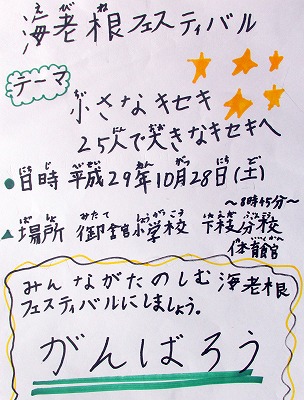 海老根フェスティバル
テーマ
小さなキセキ
25人で大きなキセキへ
●日時 平成29年10月28日(土)
～8時45分～
▲場所 御舘小学校 下枝分校
体育館
みんながたのしむ海老根
フェスティバルにしましょう。
がんばろう